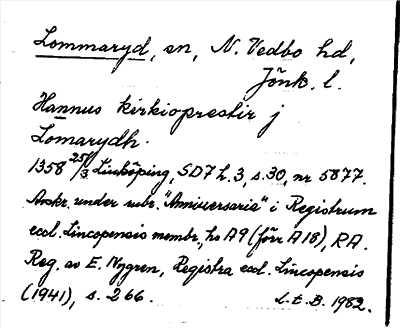 Lommaryd, sn, N. Vedbo hd,
Jönk. l.
Hannus kirkioprestir j
Lomarydh.
1358 25/3 Linköping, SD7 h.3, s.30, nr 5877.
Avskr. under rubr. "Anniversaria" i Registrum
eccl. Lincopensis membr., hs A9 (förr A18), RA.
Reg. av E. Nygren, Registra eccl. Lincopensis
(1941), s. 266.
L.t.B. 1982.